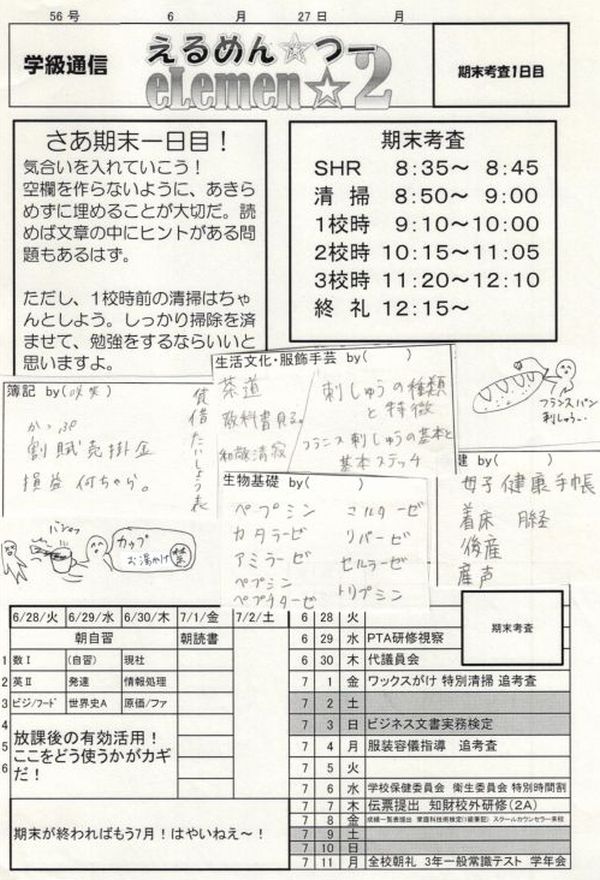 56 号 6 月 27 日 月
学級通信
えるめん☆つー
eLemen☆2
期末考査1日目
さあ期末一日目！
気合いを入れていこう！
空欄を作らないように、あきら
めずに埋めることが大切だ。読
めば文章の中にヒントがある問
題もあるはず。
ただし、1校時前の清掃はちゃ
んとしよう。しっかり掃除を済
ませて、勉強をするならいいと
思いますよ。
期末考査
SHR 8:35～ 8:45
清 掃 8:50～ 9:00
1校時 9:10～10:00
2校時 10:15～11:05
3校時 11:20～12:10
終 礼 12:15～
簿記 by( )
かっぷ
割賦売掛金
損益 付ちゃら。
貸借たいしょう表
生活文化・服飾手芸 by( )
茶道
教科書見る。
和敬清寂
刺しゅうの種類
と特徴
フランス刺しゅうの基本と
基本ステッチ
フランスパン
刺しゅう…
生物基礎 by( )
ペプシン マルターゼ
カタラーゼ リパーゼ
アミラーゼ セルラーゼ
ペプシン トリプシン
ペプチターゼ
健 by( )
母子健康手帳
着床 月経
後産
産声
カップ
お湯かけ
禁
6/28/火 6/29/水 6/30/木 7/1/金 7/2/土
朝自習 朝読書
1 数Ⅰ (自習) 現社
2 英Ⅱ 発達 情報処理
3 ビジ/フード 世界史A 原価/ファ
4
5
6
放課後の有効活用！
ここをどう使うかがカギ
だ！
期末が終わればもう7月！はやいねえ～！
6 28 火
期末考査
6 29 水 PTA研修視察
6 30 木 代議員会
7 1 金 ワックスがけ 特別清掃 追考査
7 2 土
7 3 日 ビジネス文書実務検定
7 4 月 服装容儀指導 追考査
7 5 火
7 6 水 学校保健委員会 衛生委員会 特別時間割
7 7 木 伝票提出 知財校外研修(2A)
7 8 金 成績一覧表提出 家庭科技術検定(1級筆記) スクールカウンセラー来校
7 9 土
7 10 日
7 11 月 全校朝礼 3年一般常識テスト 学年会